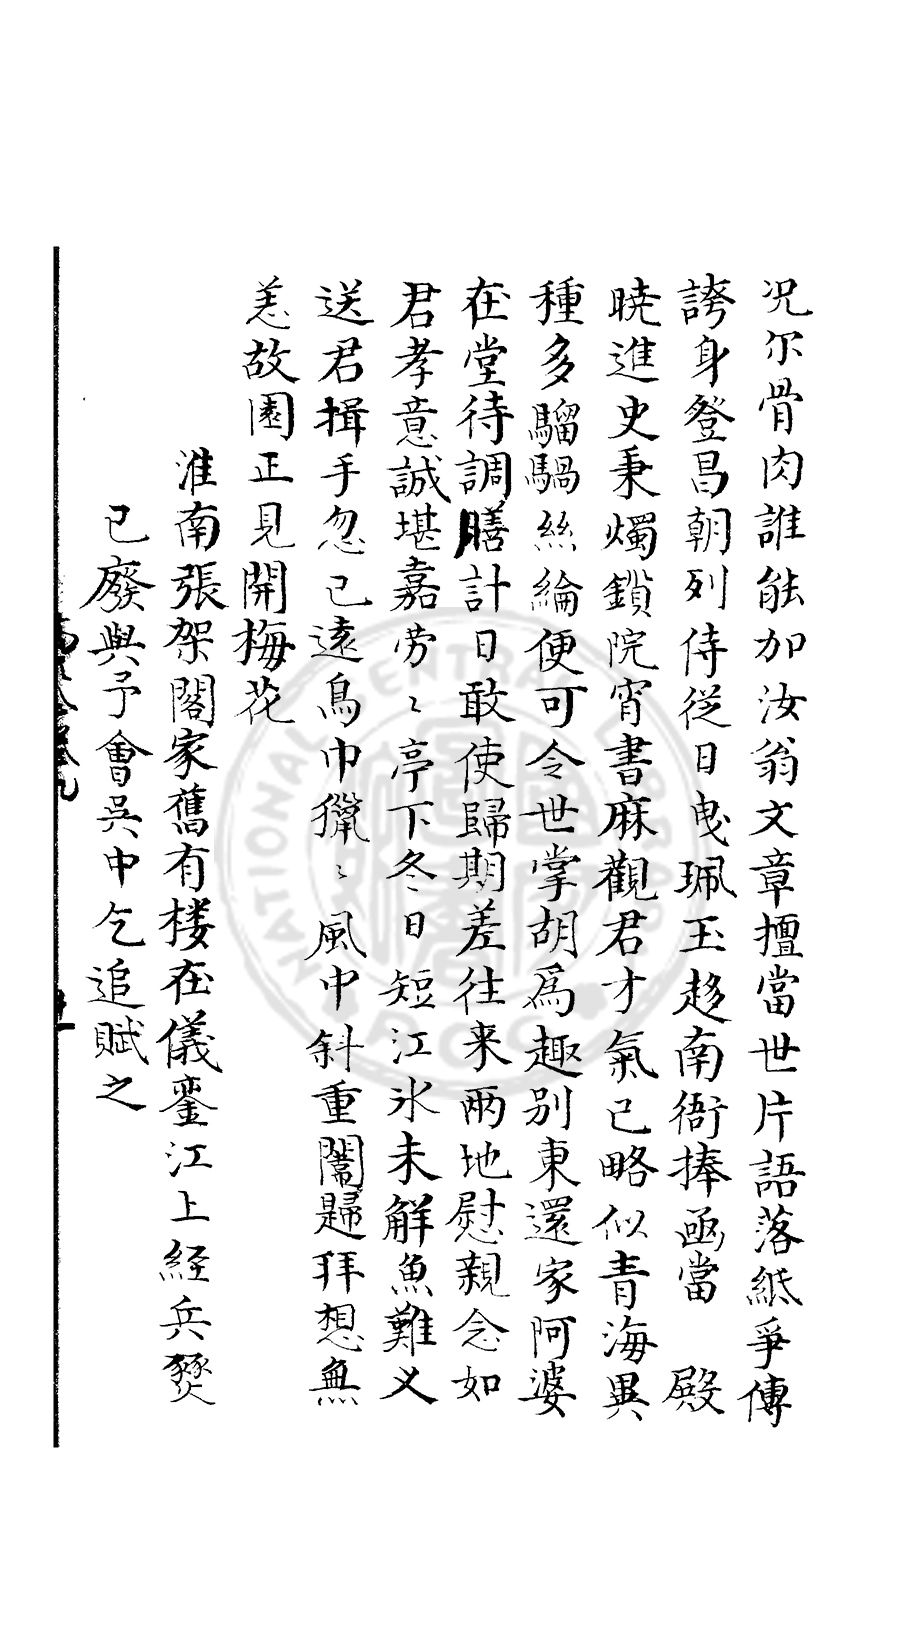 况尔骨肉誰能加汝翁文章擅當世片語落紙爭傳
誇身登昌朝列侍従日曳珮玉趍南衙捧凾當 殿
暁進史秉燭鎖院宵書麻觀君才氣已略似青海異
種多騮騧絲綸便可令世掌胡為趣别東還家阿婆
在堂待調膳計日敢使歸期差往来兩地慰親念如
君孝意誠堪嘉劳〻亭下冬日短江氷未觧魚難义
送君揖手忽已遠烏巾獵〻風中斜重闈歸拜想無
恙故園正見開梅花
淮南張架閣家舊有楼在儀鑾江上経兵燹
已廢與予會吳中乞追賦之
NATIONAL CENTRAL LIBRARY